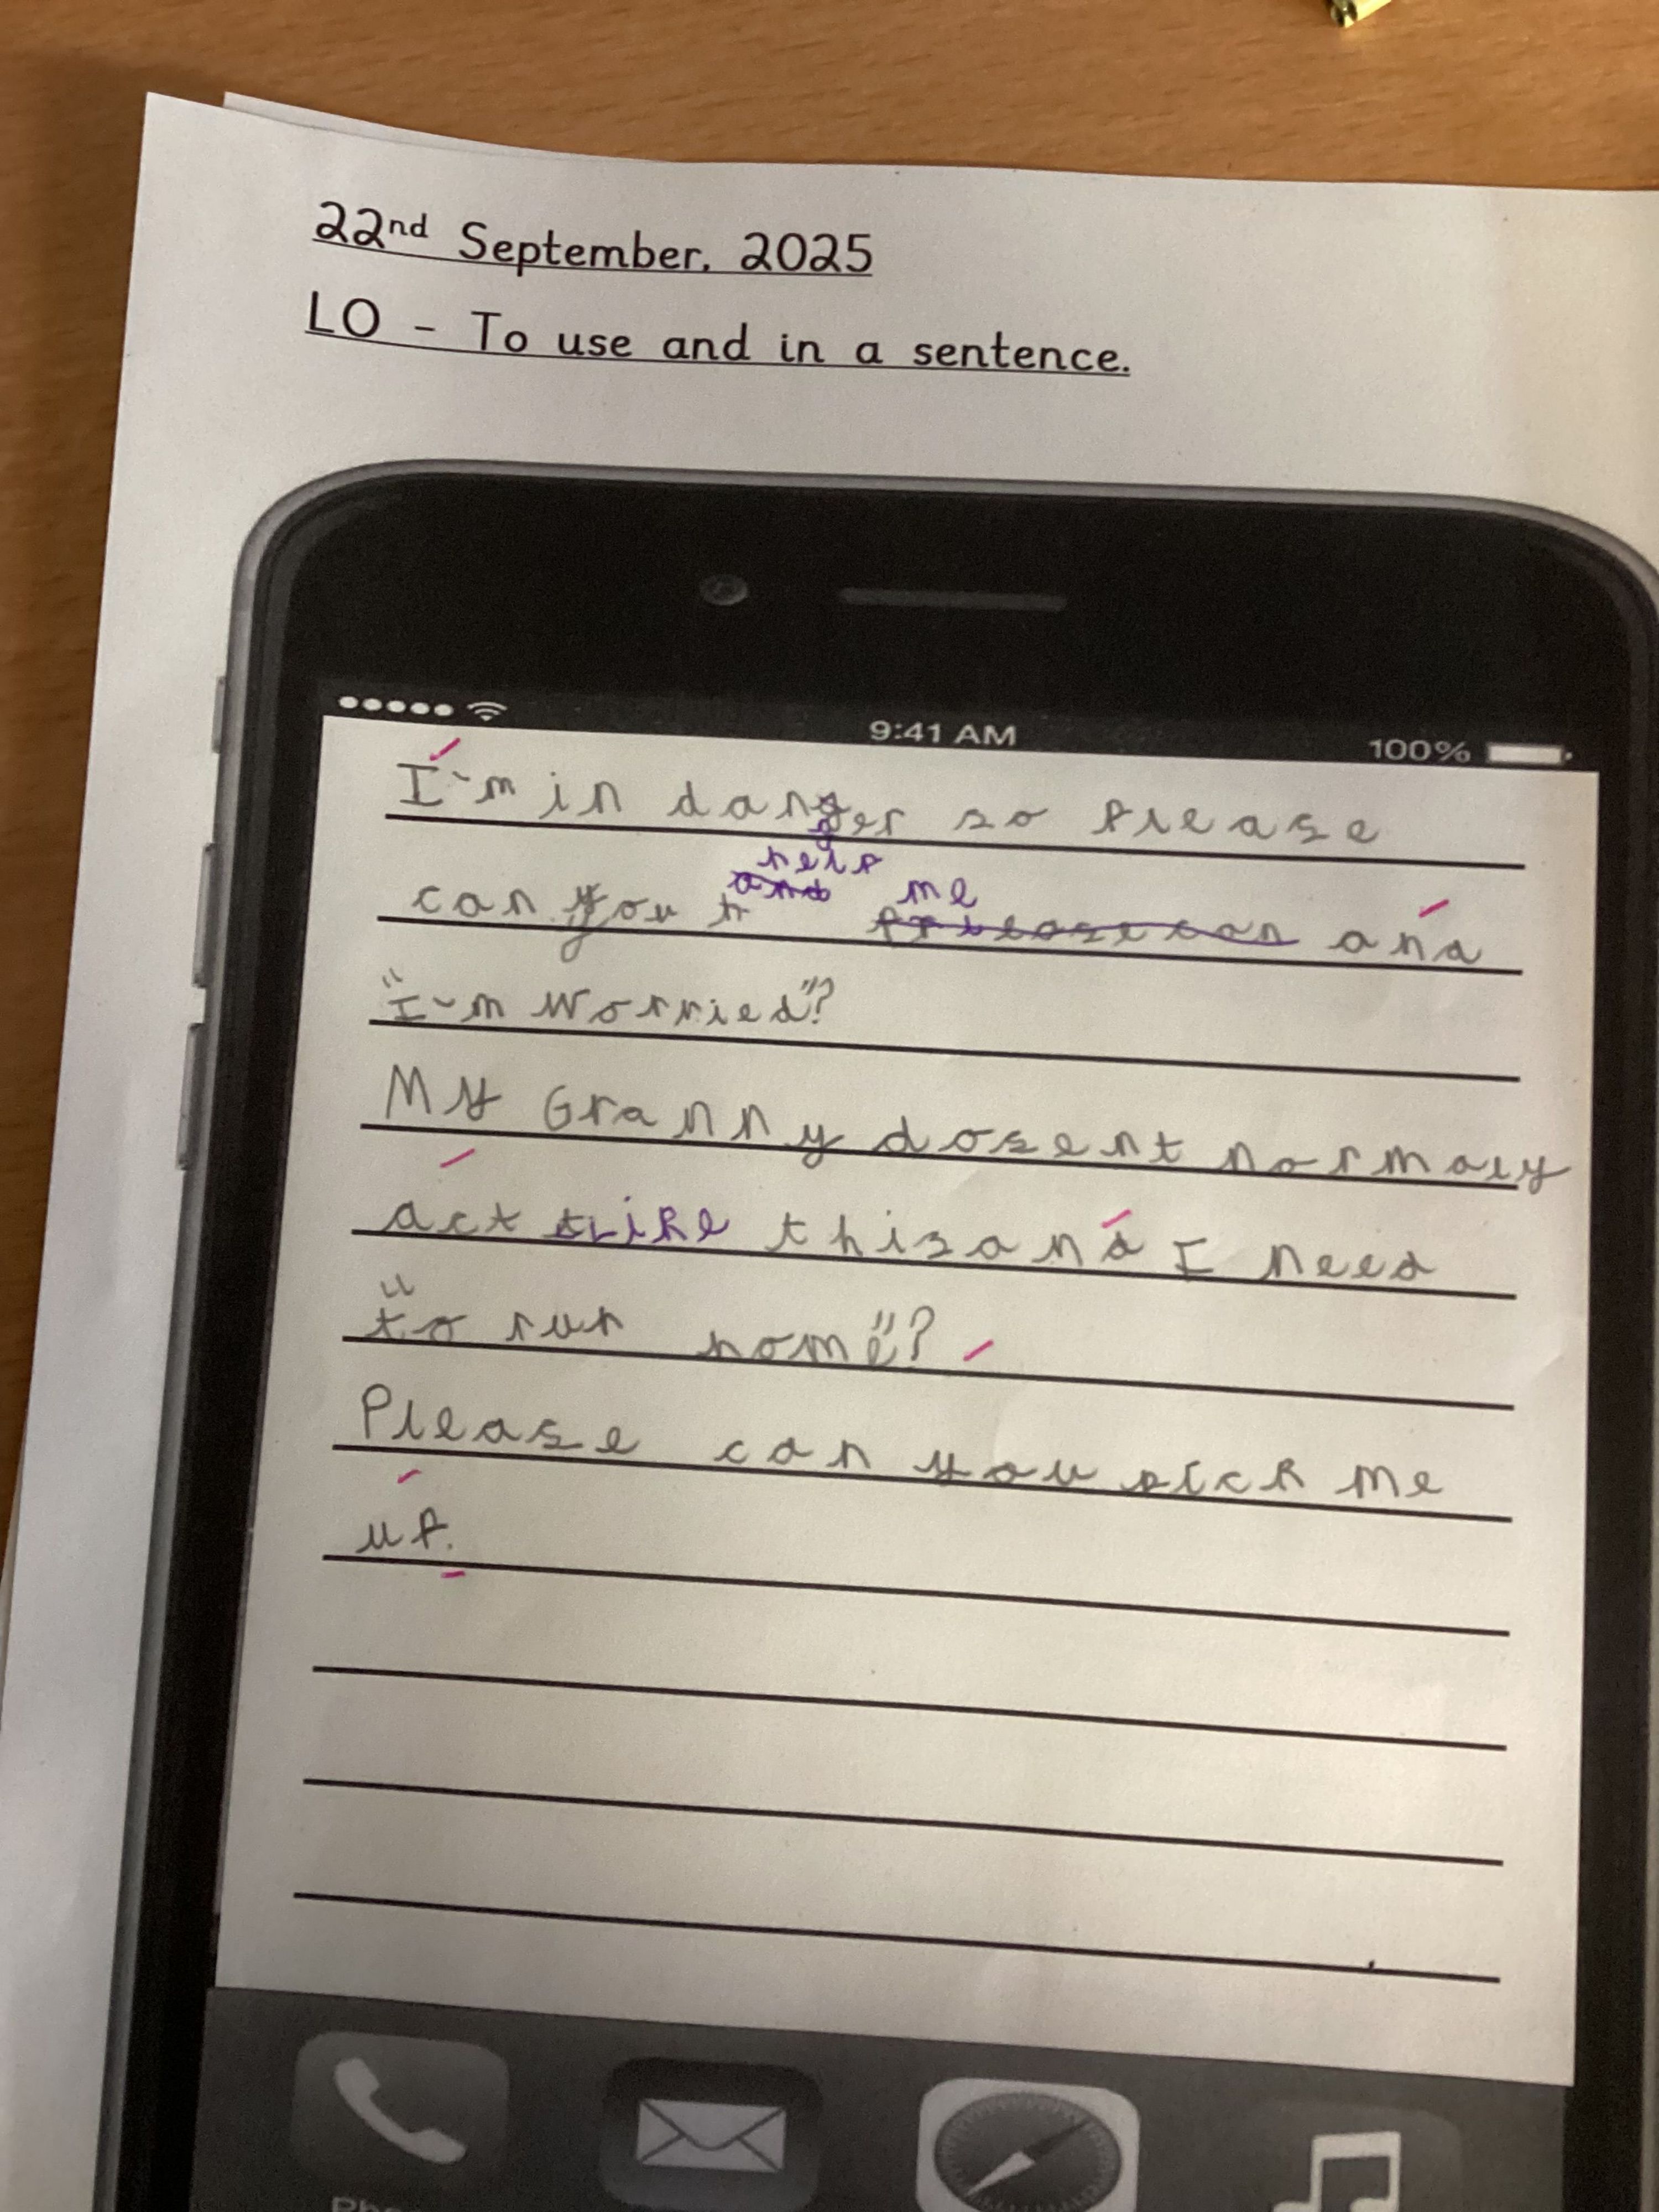 22nd September, 2025
LO - To use and in a sentence.
9:41 AM 100%
I'm in danger so please
help
and me
can you h please can and
"I'm worried"?
My Granny dosent normaly
act like this and I need
"to run home"?
Please can you pick me
up.